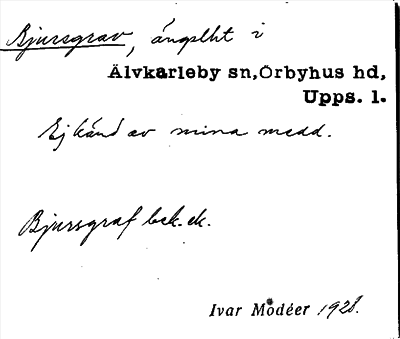 Bjursgrav, ångslht i
Älvkarleby sn, Örbyhus hd,
Upps. l.
Ej känd av mina medd.
Bjursgraf bek. ek.
Ivar Modéer 1928.